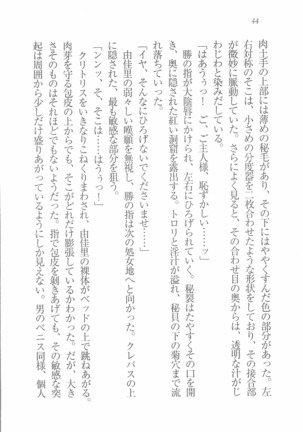 44
肉土手の上部には薄めの秘毛があり、その下にはややくすんだ色の部分があった。左
右対称のそこは、小さめの分度器を二枚合わせたような形状をしており、その接合部
が微妙に脈動していた。さらによく見ると、その合わせ目の奥からは、透明な汁がじ
わじわと染みだしている。
「はあうぅっ！　ご、ご主人様、恥ずかしい……ッ」
勝の指が大陰唇にかけられ、左右にひろげられていく。秘裂はたやすくその口を開
き、奥に隠された紅い洞窟を露出する。トロリと淫汁が溢れ、秘貝の下の菊穴まで流
れ落ちていった。
「イヤ、そんなにひろげないでくださいませ……」
由佳里の弱々しい嘆願を無視し、勝の指は次の処女地へと向かった。クレバスの上
に隠された、最も敏感な部分を狙う。
「シンッ、そ、そこは……はうぅっ！」
クリトリスをいきなりこねくりまわされ、由佳里の裸体がベッドの上で跳ねあがる。
肉芽を守る包皮の上からでも、そこがどれだけ膨張しているかわかった。だが、大き
さそのものはそれほどでもないようだった。指で包皮を剥きあげても、その敏感な突
起は周囲から少しだけ盛りあがっているようにしか見えない。男のペニス同様、個人